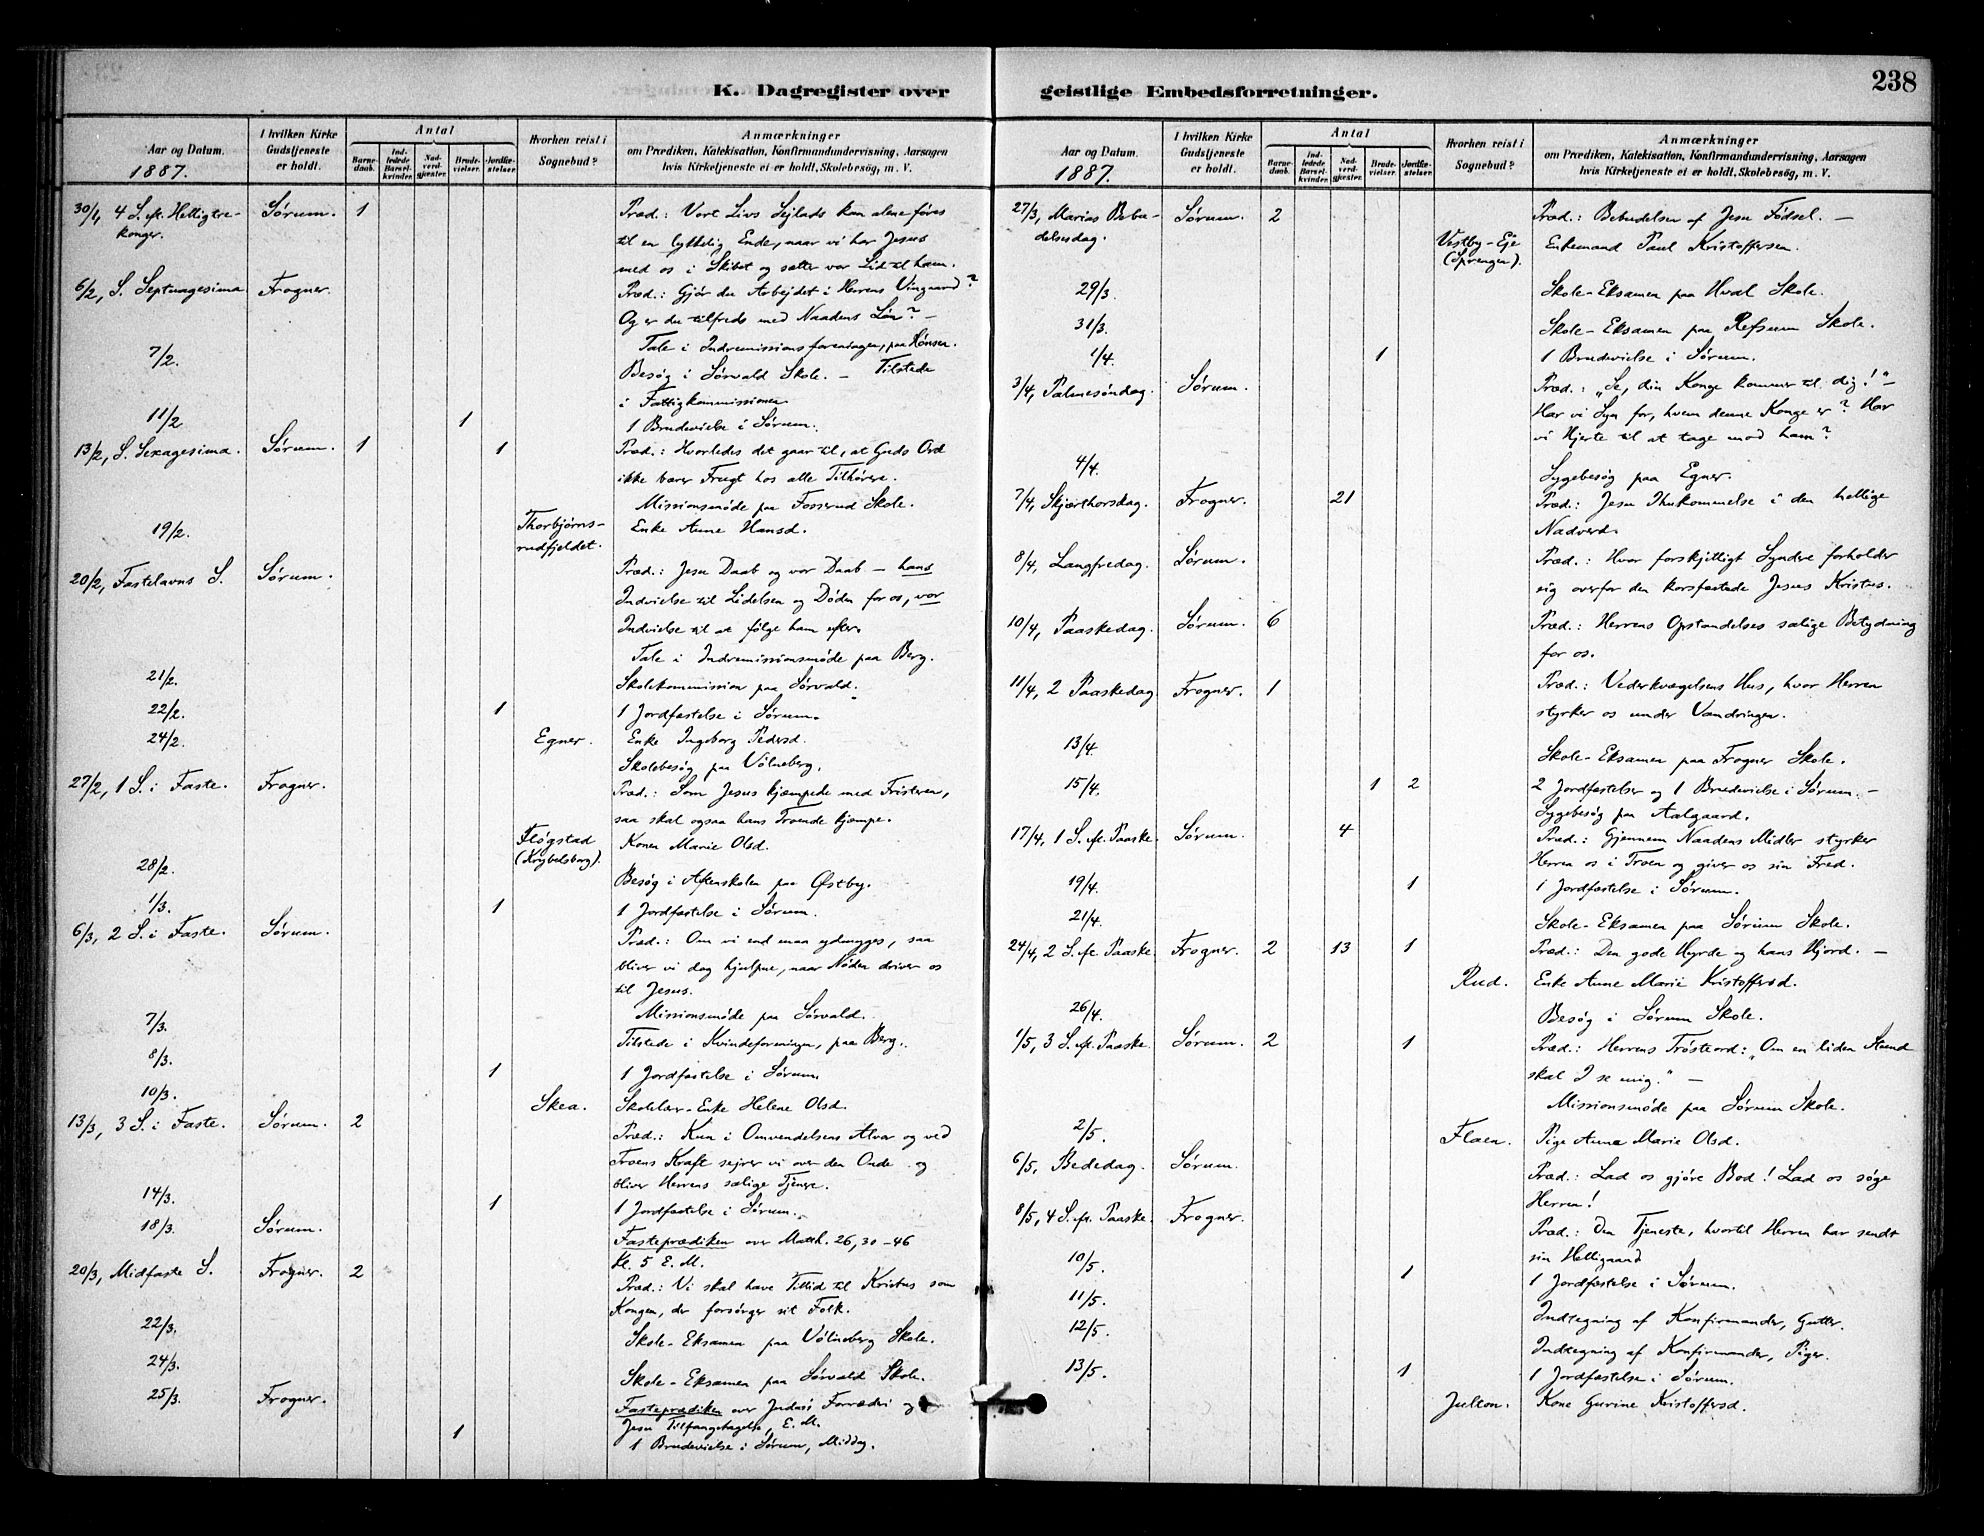 238
K. Dagregister over
Aar og Datum.
1887.
I hvilken Kirke Gudstjeneste er holdt.
Antal
Barnedaab.
Indledede Barselkvinder.
Nadverdgjæster.
Brudevielser.
Jordfæstelser.
Hvorhen reist i Sognebud?
Anmærkninger
om Prædiken, Katekisation, Konfirmandundervisning, Aarsagen
hvis Kirketjeneste ei er holdt, Skolebesög, m. V.
30/1, 4 S. ef. Helligtre- Sørum. 1 Præd.: Vort Livs Sejlads kan alene føres
konger. til en lykkelig Ende, naar vi har Jesus
med os i Skibet og sætter vor Lid til ham.
6/2, S. Septuagesima Frogner. Præd.: Gjør du Arbejdet i Herrens Vingaard?
Og er du tilfreds med Naadens Løn? –
Tale i Indremissionsforeningen, paa Hønsen.
7/2. Besøg i Sørvald Skole. – Tilstede
i Fattigkommissionen.
11/2 1 1 Brudevielse i Sørum.
13/2, S. Sexagesima. Sørum. 1 1 Præd.: Hvorledes det gaar til, at Guds Ord
ikke bærer Frugt hos alle Tilhørere.
Missionsmøde paa Fosserud Skole.
19/2. Thorbjørns- Enke Anne Hansd.
rudfjeldet.
20/2, Fastelavns S. Sørum. Præd.: Jesu Daab og vor Daab – hans
Indvielse til Lidelsen og Døden for os, vor
Indvielse til at følge ham efter.
Tale i Indremissionsmøde paa Berg.
21/2. Skolekommission paa Sørvald.
22/2. 1 1 Jordfæstelse i Sørum.
24/2. Egner. Enke Ingeborg Pedersd.
Skolebesøg paa Vølneberg.
27/2, 1 S. i Faste. Frogner. Præd.: Som Jesus kjæmpede med Fristeren,
saa skal ogsaa hans Troende kjæmpe.
Fløgstad Konen Marie Olsd.
(Krybelsborg).
28/2. Besøg i Aftenskolen paa Østby.
1/3. 1 1 Jordfæstelse i Sørum.
6/3, 2 S. i Faste. Sørum. Præd.: Om vi end maa ydmyges, saa
bliver vi dog hjulpne, naar Nøden driver os
til Jesus.
Missionsmøde paa Sørvald.
7/3. Tilstede i Kvindeforeningen, paa Berg.
8/3. 1 1 Jordfæstelse i Sørum.
10/3. Skea. Skolelær.-Enke Helene Olsd.
13/3, 3 S. i Faste. Sørum. 2 Præd.: Kun i Omvendelsens Alvor og ved
Troens Kraft sejrer vi over den Onde og
bliver Herrens sælige Tjenere.
14/3. 1 1 Jordfæstelse i Sørum.
18/3. Sørum. Fasteprædiken over Matth. 26, 30–46
Kl. 5 E.M.
20/3, Midfaste S. Frogner. 2 Præd.: Vi skal have Tillid til Kristus som
Kongen, der forsørger sit Folk.
22/3. Skole-Eksamen paa Vølneberg Skole.
24/3. Skole-Eksamen paa Sørvald Skole.
25/3. Frogner. Fasteprædiken over Judas's Forræderi og
Jesu Tilfangetagelse, E.M.
1 1 Brudevielse i Sørum, Middag.
geistlige Embedsforretninger.
Aar og Datum.
1887.
I hvilken Kirke Gudstjeneste er holdt.
Antal
Barnedaab.
Indledede Barselkvinder.
Nadverdgjæster.
Brudevielser.
Jordfæstelser.
Hvorhen reist i Sognebud?
Anmærkninger
om Prædiken, Katekisation, Konfirmandundervisning, Aarsagen
hvis Kirketjeneste ei er holdt, Skolebesög, m. V.
27/3, Marias Bebu- Sørum. 2 Præd.: Bebudelsen af Jesu Fødsel. –
delsesdag. Vestby-Eje Enkemand Paul Kristoffersen.
(Sprengen).
29/3. Skole-Eksamen paa Hval Skole.
31/3. Skole-Eksamen paa Refsum Skole.
1/4. 1 1 Brudevielse i Sørum.
3/4, Palmesøndag. Sørum. Præd.: „Se, din Konge kommer til dig!“ –
Har vi Syn for, hvem denne Konge er? Har
vi Hjerte til at tage mod ham?
4/4. Sygebesøg paa Egner.
7/4, Skjærthorsdag. Frogner. 21 Præd.: Jesu Ihukommelse i den hellige
Nadverd.
8/4, Langfredag. Sørum. Præd.: Hvor forskjelligt Syndere forholder
sig overfor den korsfæstede Jesus Kristus.
10/4, Paaskedag. Sørum. 6 Præd.: Herrens Opstandelses sælige Betydning
for os.
11/4, 2 Paaskedag Frogner. 1 Præd.: Vederkvægelsens Hus, hvor Herren
styrker os under Vandringen.
13/4. Skole-Eksamen paa Frogner Skole.
15/4. 1 2 2 Jordfæstelser og 1 Brudevielse i Sørum. –
Sygebesøg paa Aalgaard.
17/4, 1 S. ef. Paaske. Sørum. 4 Præd.: Gjennem Naadens Midler styrker
Herren os i Troen og giver os sin Fred.
19/4. 1 1 Jordfæstelse i Sørum.
21/4. Skole-Eksamen paa Sørum Skole.
24/4, 2 S. ef. Paaske. Frogner. 2 13 1 Præd.: Den gode Hyrde og hans Hjord. –
Rud. Enke Anne Marie Kristoffersd.
26/4. Besøg i Sørum Skole.
1/5, 3 S. ef. Paaske. Sørum. 2 1 Præd.: Herrens Trøsteord: „Om en liden Stund
skal I se mig.“ –
Missionsmøde paa Sørum Skole.
2/5. Flaen. Pige Anna Marie Olsd.
6/5, Bededag. Sørum. Præd.: Lad os gjøre Bod! Lad os søge
Herren!
8/5, 4 S. ef. Paaske. Frogner. Præd.: Den Tjeneste, hvortil Herren har sendt
sin Helligaand
10/5. 1 1 Jordfæstelse i Sørum.
11/5. Indtegning af Konfirmander, Gutter.
12/5. Indtegning af Konfirmander, Piger.
13/5. 1 1 Jordfæstelse i Sørum.
Julton. Kone Gurine Kristoffersd.